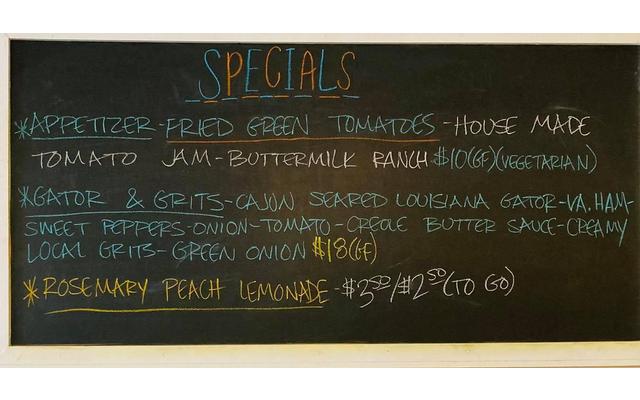 SPECIALS
*APPETIZER-FRIED GREEN TOMATOES-HOUSE MADE
TOMATO JAM-BUTTERMILK RANCH $10(GF)(VEGETARIAN)
*GATOR & GRITS-CAJUN SEARED LOUISIANA GATOR-VA.HAM-
SWEET PEPPERS-ONION-TOMATO-CREOLE BUTTER SAUCE-CREAMY
LOCAL GRITS-GREEN ONION $18(GF)
*ROSEMARY PEACH LEMONADE-$3.50/$2.50(TO GO)